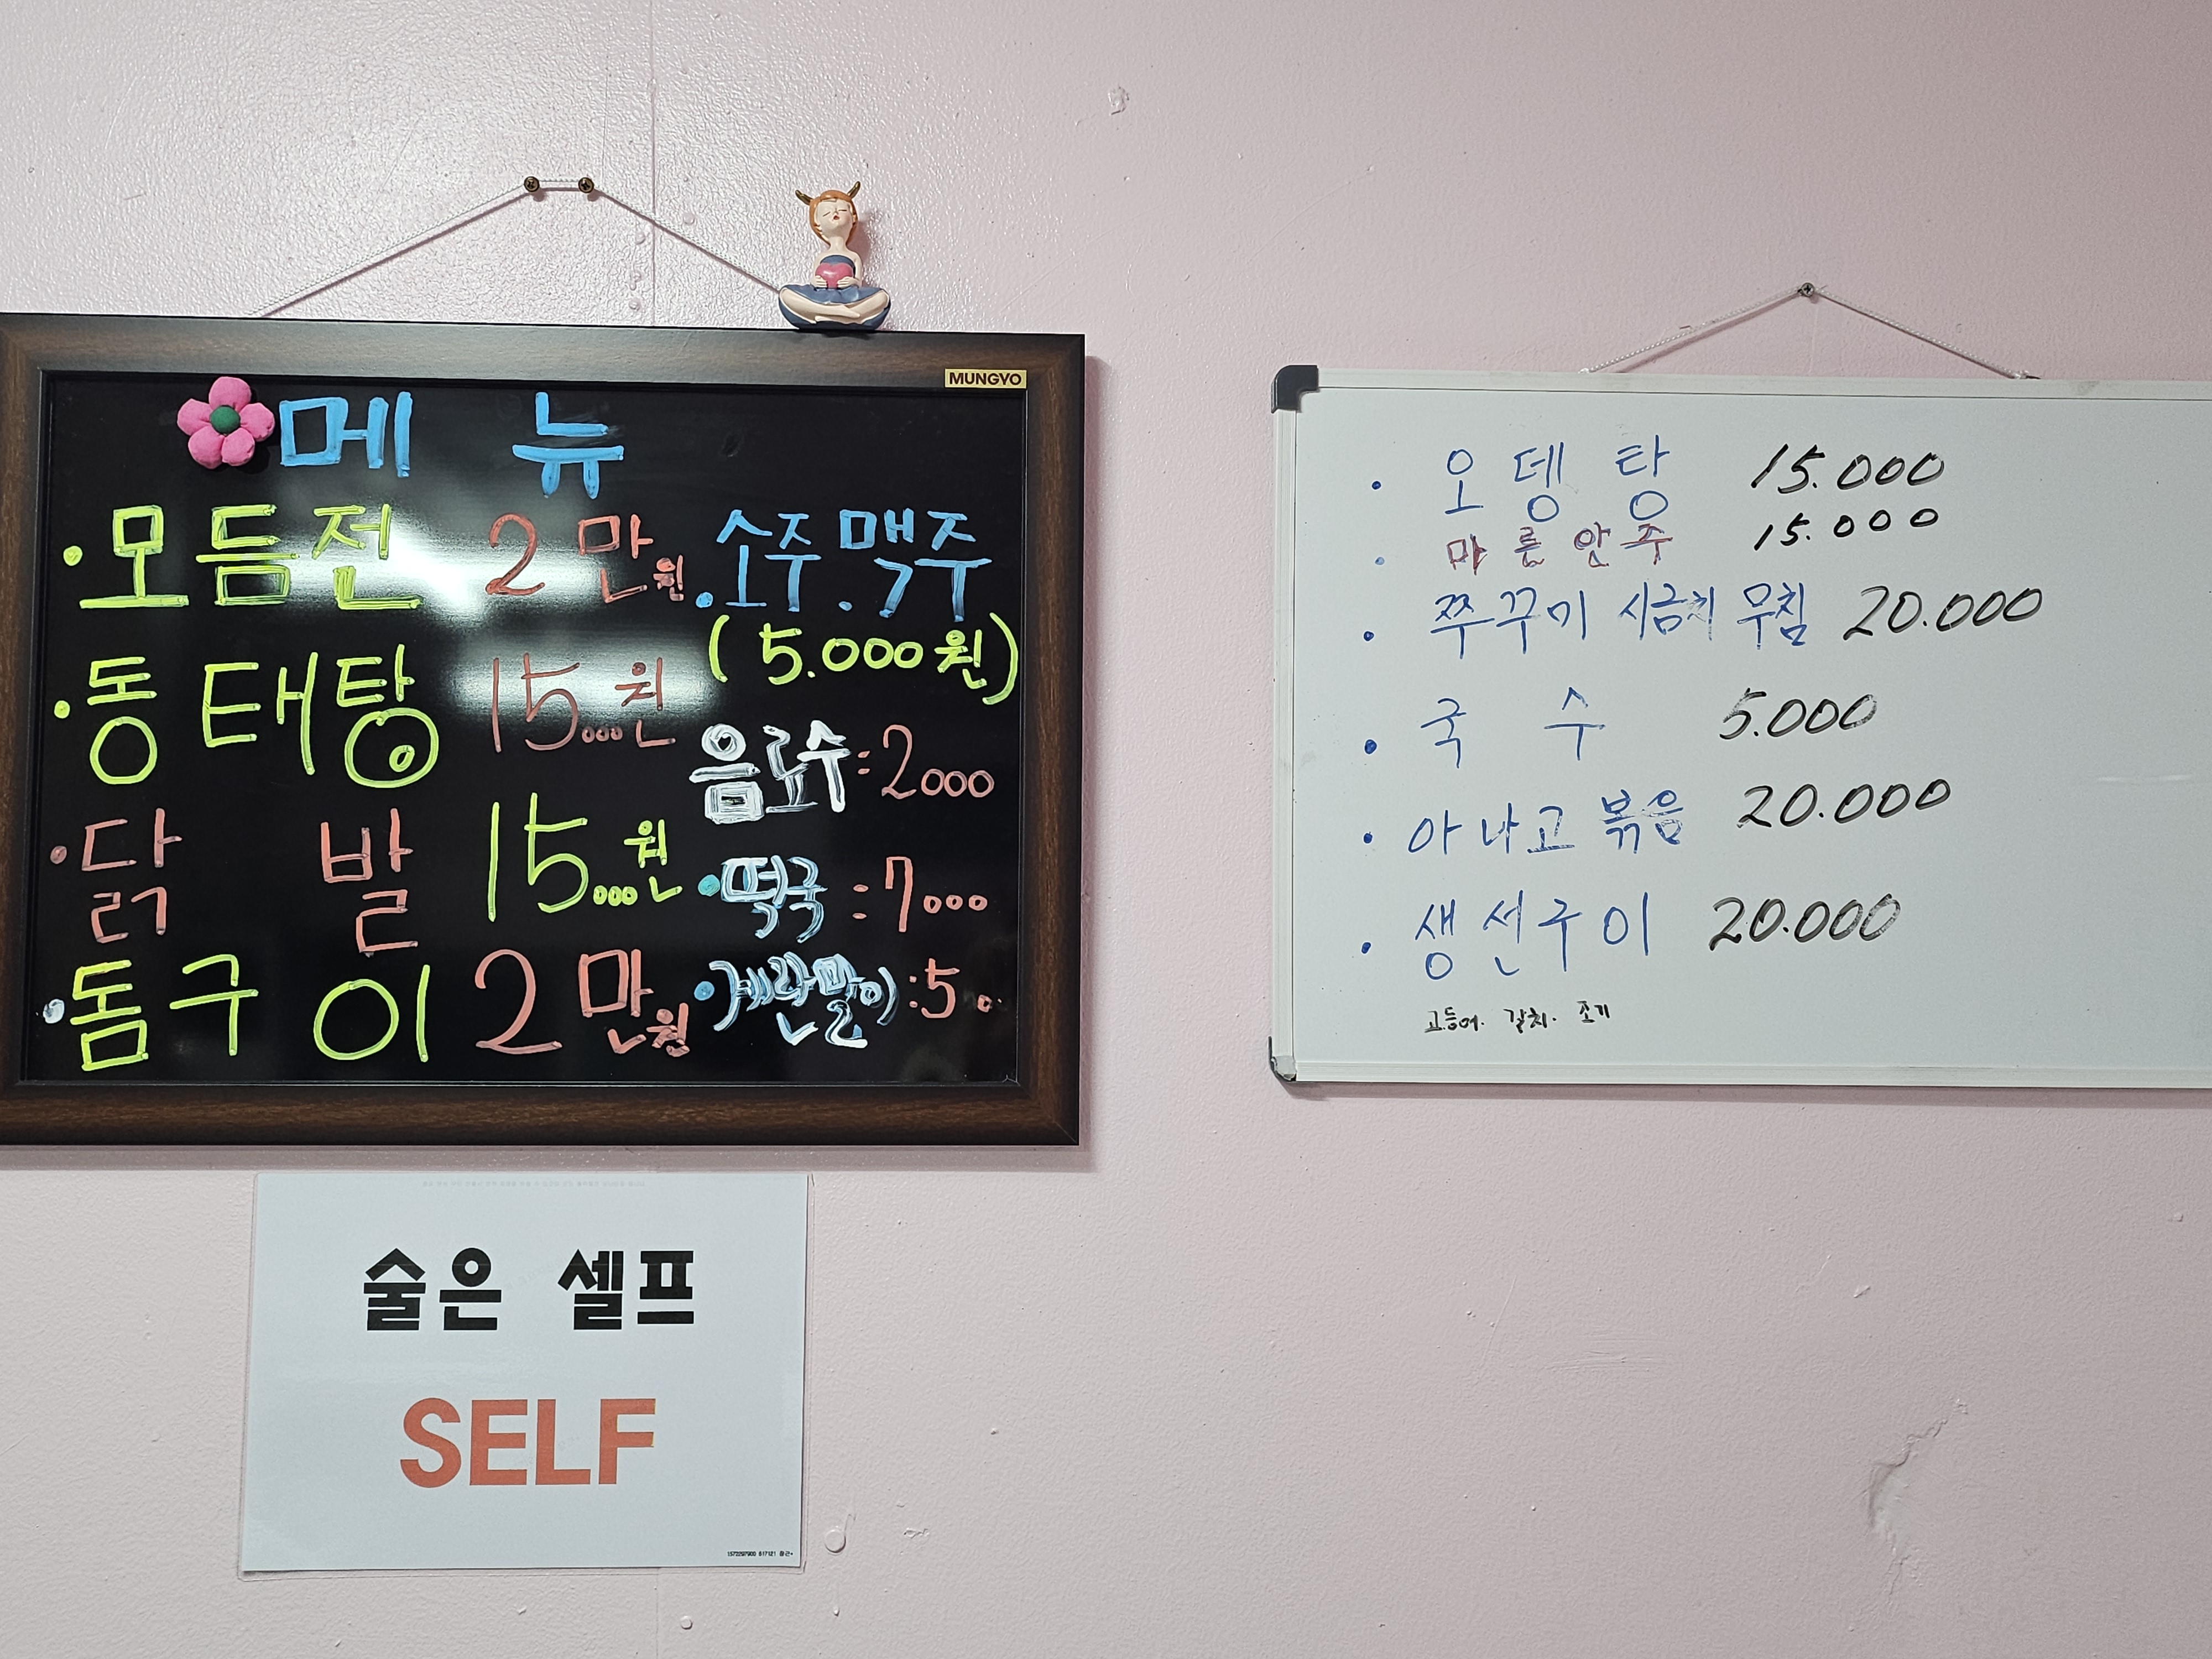 MUNGYO
메 뉴
·모듬전 2만원
·동태탕 15.000원
·닭 발 15.000원
·돔구이 2만원
·소주.맥주
(5.000원)
음료수:2000
·떡국:7000
·계란말이:5
술은 셀프
SELF
· 오뎅탕 15.000
· 마른안주 15.000
· 쭈꾸미 시금치 무침 20.000
· 국 수 5.000
· 아나고 볶음 20.000
· 생선구이 20.000
고등어. 갈치. 조기